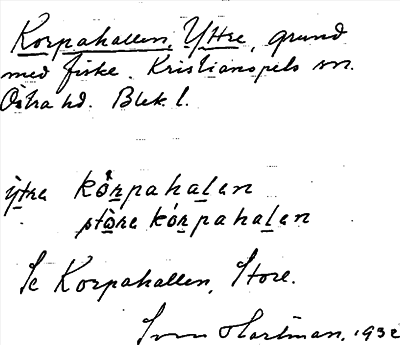 Korpahallen, Yttre, grund
med fiske. Kristianopels sn.
Östra hd. Blek. l.
ytre kòrpahalen
stòre kórpahalen
Se Korpahallen, Store.
Sven Hartman, 1932